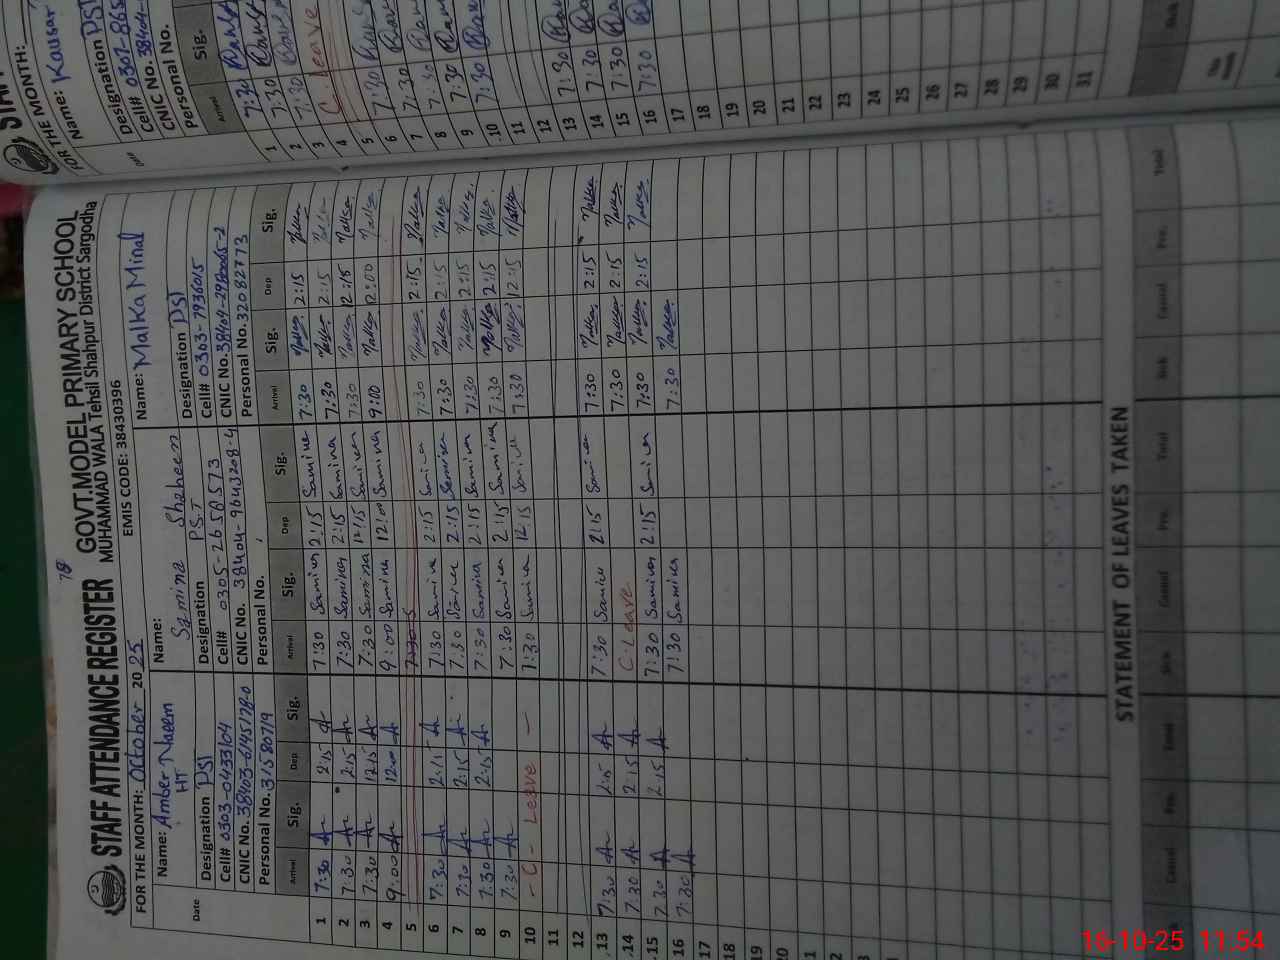 78
STAFF ATTENDANCE REGISTER GOVT.MODEL PRIMARY SCHOOL
MUHAMMAD WALA Tehsil Shahpur District Sargodha
FOR THE MONTH: October 2025 EMIS CODE: 38430396
Name: Amber Naeem
HT
Designation PST
Cell# 0303-0433104
CNIC No. 38403-6145178-0
Personal No. 31580719
Name:
Samina Shaheen
Designation PST
Cell# 0305-2650573
CNIC No. 38404-9643208-4
Personal No.
Name: Malka Minal
Designation PST
Cell# 0303-7936015
CNIC No.
Personal No. 32082773
Date Arrival Sig. Dep Sig. Arrival Sig. Dep Sig. Arrival Sig. Dep Sig.
1 7:30 2:15 7:30 Samina 2:15 Samina 7:30 Malka 2:15 Malka
2 7:30 2:15 7:30 Samina 2:15 Samina 7:30 Malka 2:15 Malka
3 7:30 12:15 7:30 Samina 12:15 Samina 7:30 Malka 12:15 Malka
4 9:00 12:00 9:00 Samina 12:00 Samina 9:00 Malka 12:00 Malka
5
6 7:30 2:15 7:30 Samina 2:15 Samina 7:30 Malka 2:15 Malka
7 7:30 2:15 7:30 Samina 2:15 Samina 7:30 Malka 2:15 Malka
8 7:30 2:15 7:30 Samina 2:15 Samina 7:30 Malka 2:15 Malka
9 7:30 7:30 Samina 2:15 Samina 7:30 Malka 2:15 Malka
10 - C - Leave - 7:30 Samina 12:15 Samina 7:30 Malka 12:15 Malka
11
12
13 7:30 2:15 7:30 Samina 2:15 Samina 7:30 Malka 2:15 Malka
14 7:30 2:15 C. Leave 7:30 Malka 2:15 Malka
15 7:30 2:15 7:30 Samina 2:15 Samina 7:30 Malka 2:15 Malka
16 7:30 7:30 Samina 7:30 Malka
17
18
19
20
STATEMENT OF LEAVES TAKEN
Casual Pre. Total Sick Casual Pre. Total Sick Casual Pre. Total
FOR THE MONTH:
Name: Kausar
Designation PST
Cell#
CNIC No.
Personal No.
Date Arrival Sig.
1 7:30
2 7:30
3 7:30
4 C Leave
5
6 7:30
7 7:30
8 7:30
9 7:30
10 7:30
11
12
13 7:30
14 7:30
15 7:30
16 7:30
17
18
19
20
21
22
23
24
25
26
27
28
29
30
31
Sick
16-10-25 11:54